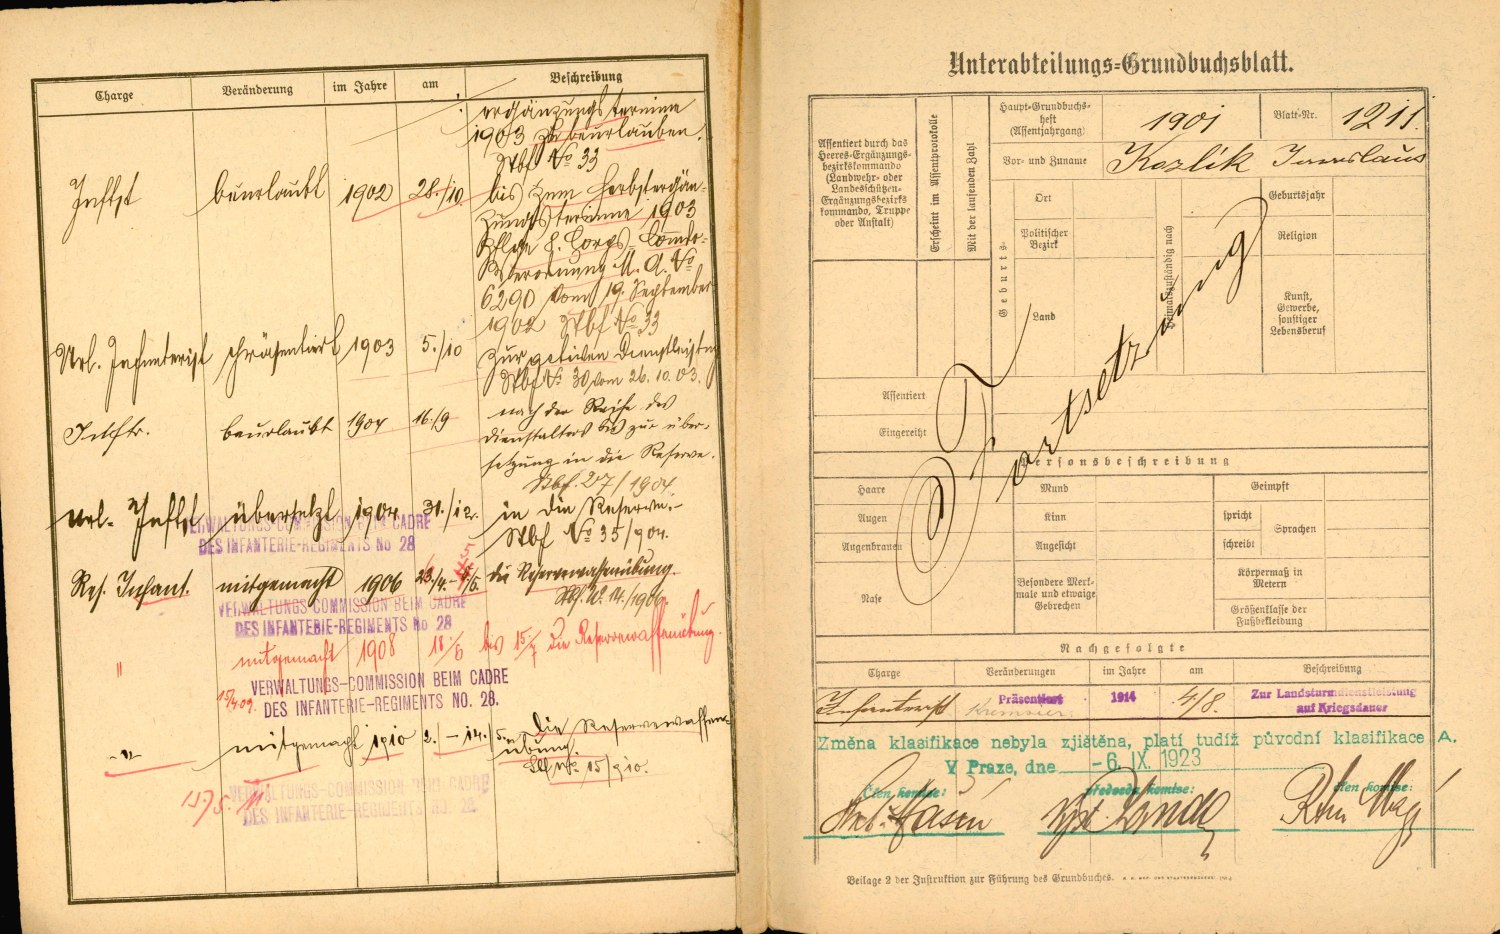 Charge Veränderung im Jahre am Beschreibung
ergänzungstermine
1903 zu beurlauben.
Stbf No 33
Inftst beurlaubt 1902 28./10. bis zum Herbstergän-
zungstermine 1903
8. Corps-Commdo-
Verordnung M. A. No
6290 vom 19. September
1902 Stbf No 33
Url. Infanterist präsentiert 1903 5./10 zur activen Dienstleistung
Stbf No 30 vom 26. 10. 03.
Inftr. beurlaubt 1904 16./9 nach der Reihe des
Dienstalters bis zur über-
setzung in die Reserve.
Stbf. 27/1904.
Url. Inftst übersetzt 1904 31./12. in die Reserve.-
Stbf No 35/904.
VERWALTUNGS-COMMISSION BEIM CADRE
DES INFANTERIE-REGIMENTS No 28
Res. Infant. mitgemacht 1906 23./4.- /5. die Reservewaffenübung.
Stbf. No. 14./1906.
VERWALTUNGS-COMMISSION BEIM CADRE
DES INFANTERIE-REGIMENTS No 28
" mitgemacht 1908 18/6 bis 15/7 die Reservewaffenübung.
15/7 09. VERWALTUNGS-COMMISSION BEIM CADRE
DES INFANTERIE-REGIMENTS NO. 28.
-"- mitgemacht 1910 2. - 14./5. die Reservewaffen-
übung.
Stbf No 15/910.
VERWALTUNGS-COMMISSION BEIM CADRE
DES INFANTERIE-REGIMENTS NO. 28.
Unterabteilungs-Grundbuchsblatt.
Assentiert durch das
Heeres-Ergänzungs-
bezirkskommando
(Landwehr- oder
Landesschützen-
Ergänzungsbezirks
kommando, Truppe
oder Anstalt)
Erscheint im Assentprotokolle
Mit der laufenden Zahl
Haupt-Grundbuchs-
heft
(Assentjahrgang)
1901
Blatt-Nr.
1211.
Vor- und Zuname
Kozlik Jaroslaus
Geburts-
Ort
Politischer
Bezirk
Land
Heimatszuständig nach
Geburtsjahr
Religion
Kunst,
Gewerbe,
sonstiger
Lebensberuf
Fortsetzung
Assentiert
Eingereiht
Personsbeschreibung
Haare Mund Geimpft
Augen Kinn spricht Sprachen
Augenbrauen Angesicht schreibt
Nase Besondere Merk-
male und etwaige
Gebrechen
Körpermaß in
Metern
Größenklasse der
Fußbekleidung
Nachgefolgte
Charge Veränderungen im Jahre am Beschreibung
Infanterist Präsentiert 1914 4/8 Zur Landsturmdienstleistung
auf Kriegsdauer
Změna klasifikace nebyla zjištěna, platí tudíž původní klasifikace A.
V Praze, dne -6. IX. 1923
Člen komise: předseda komise: člen komise:
Beilage 2 der Instruktion zur Führung des Grundbuches.